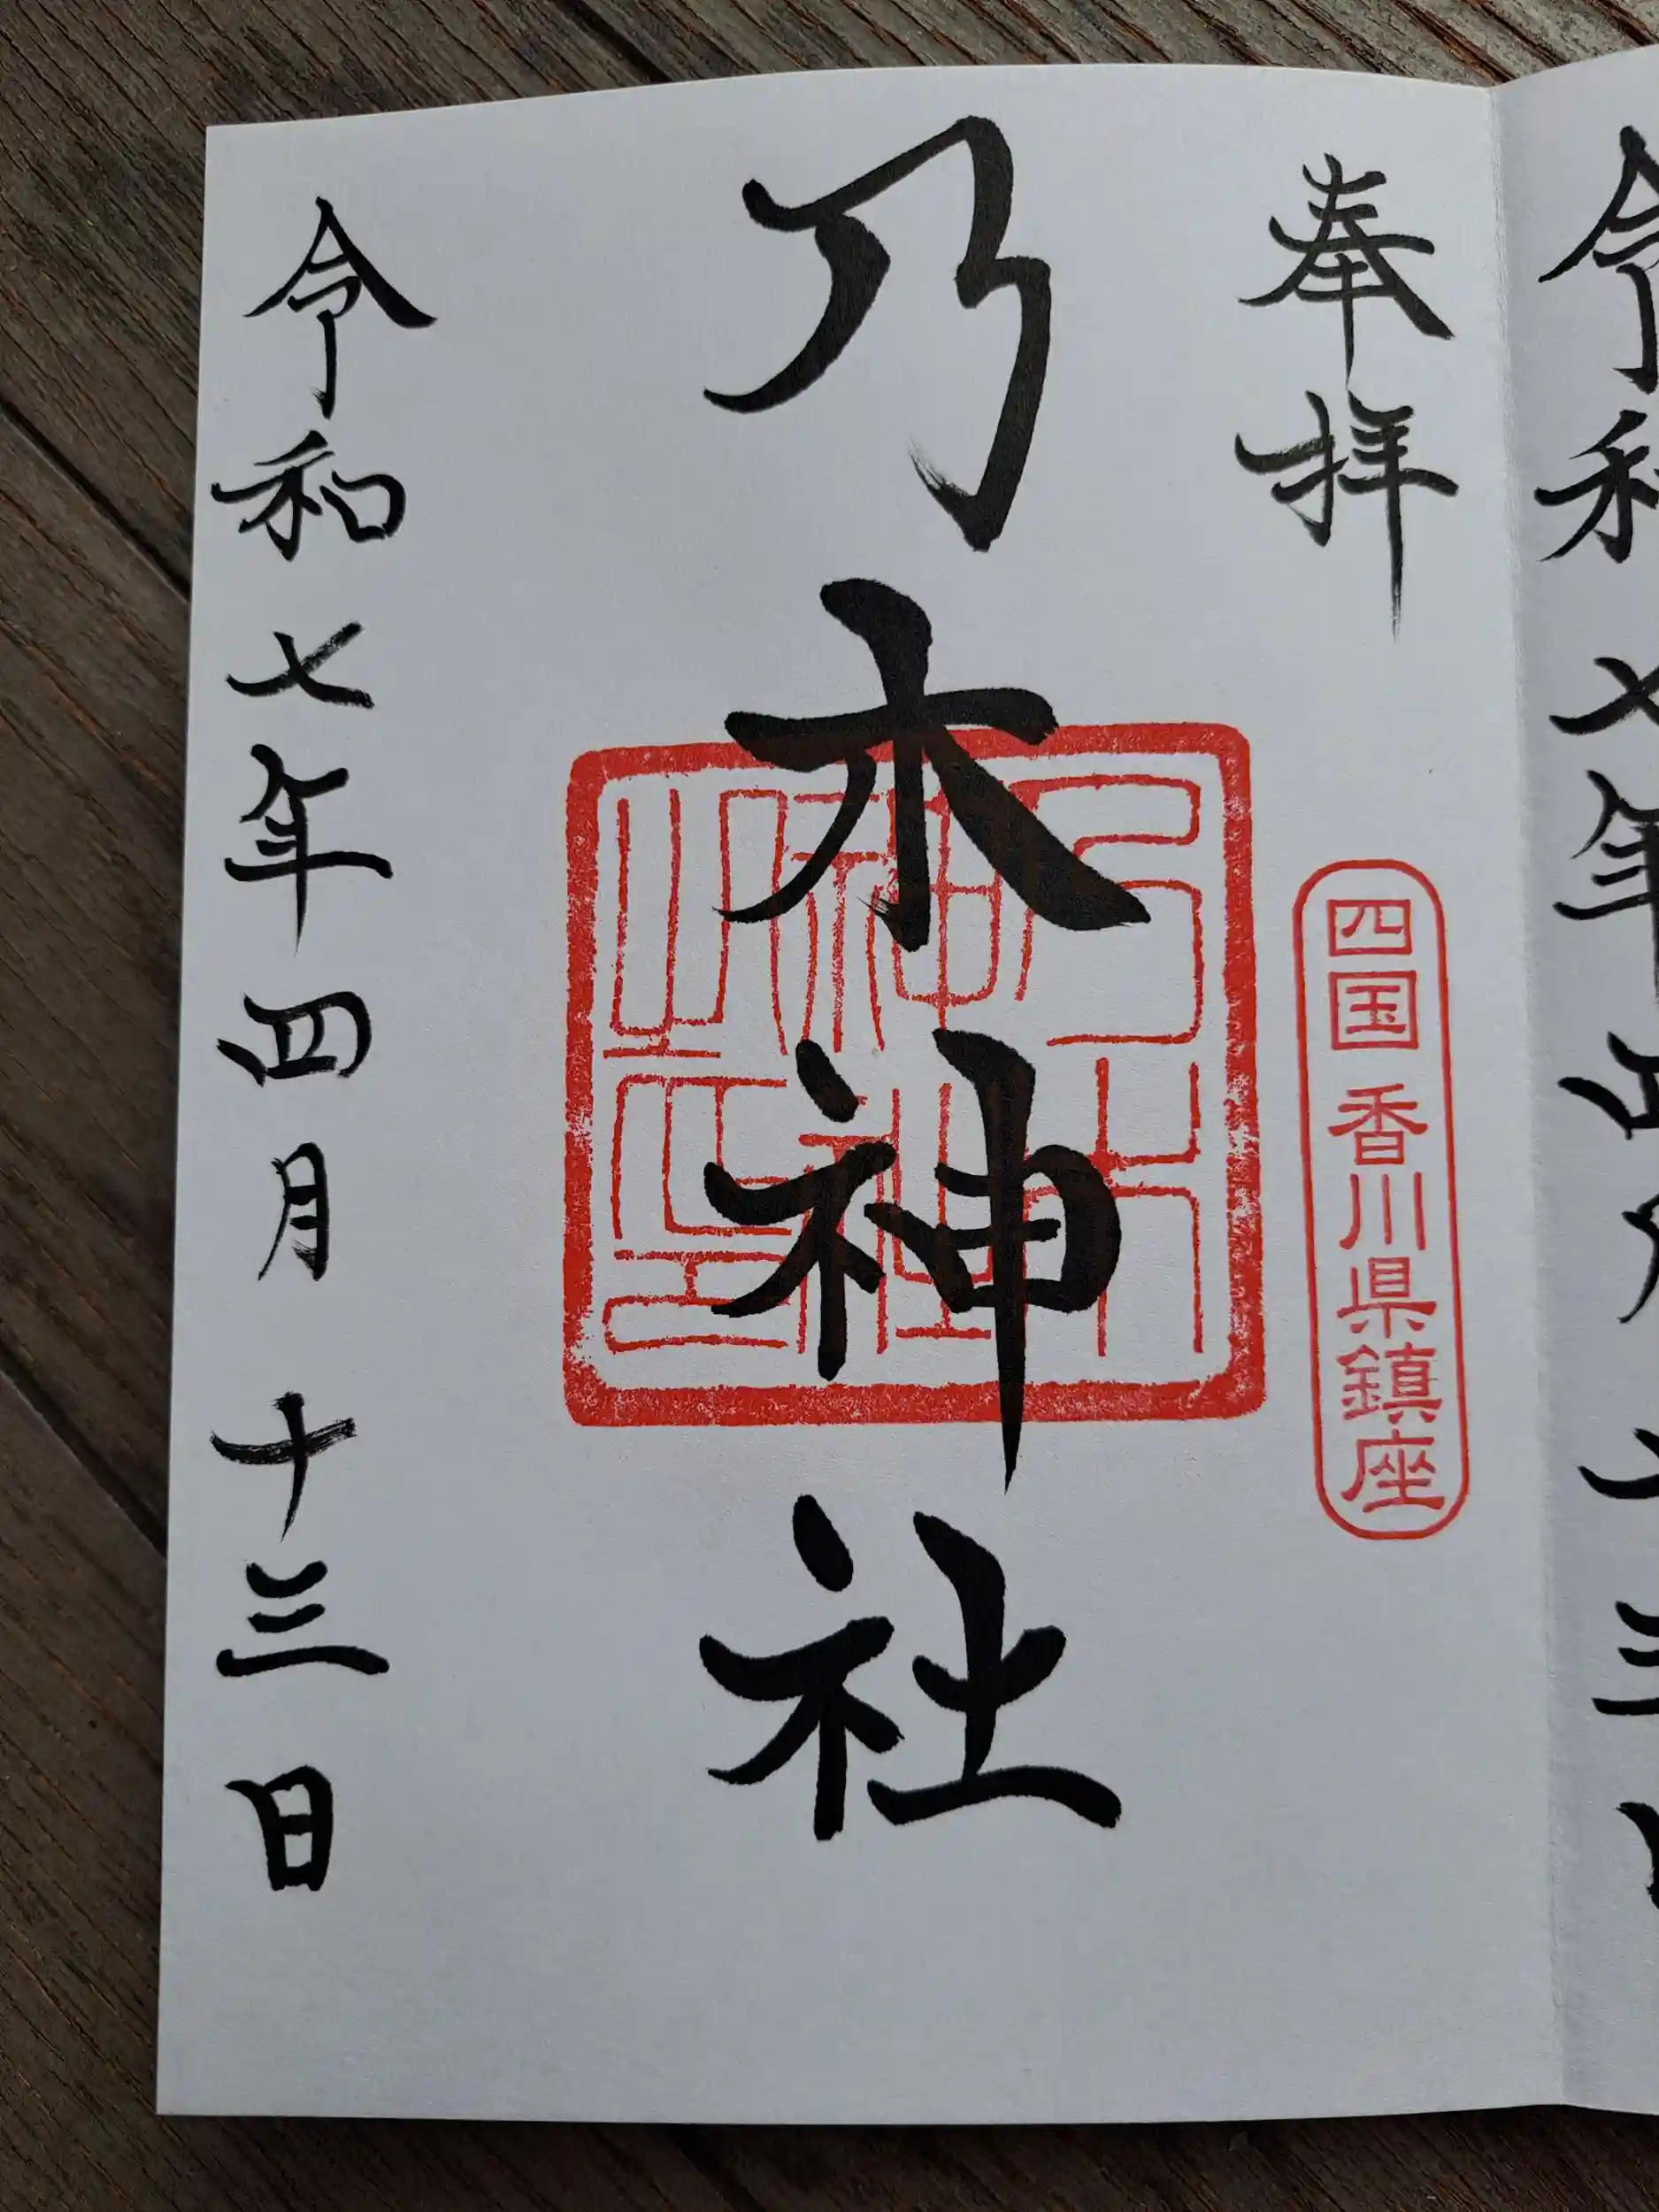 奉拝
四国 香川県鎮座
乃木神社
乃木神社之印
令和七年四月十三日